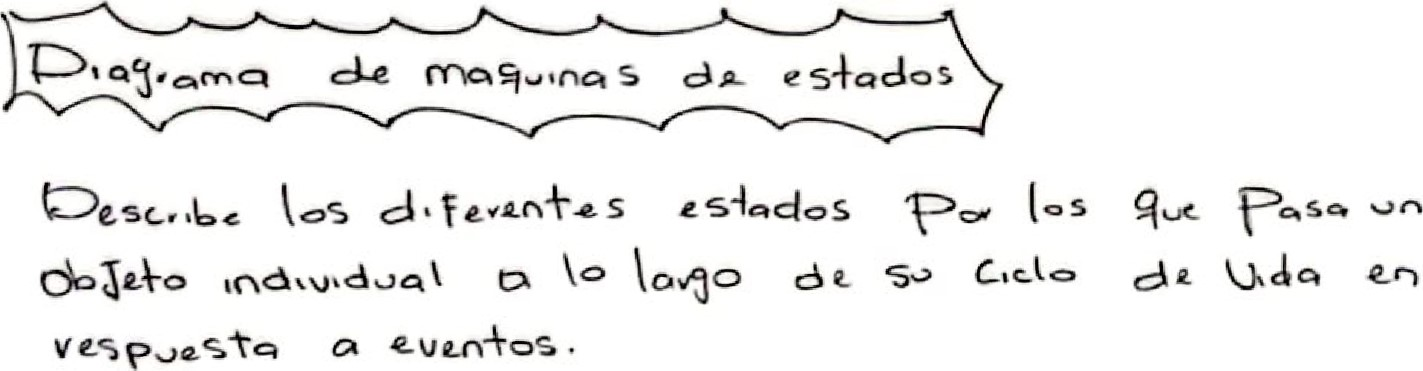 Diagrama de maquinas de estados
Describe los diferentes estados Por los que Pasa un
objeto individual a lo largo de su Ciclo de Vida en
respuesta a eventos.